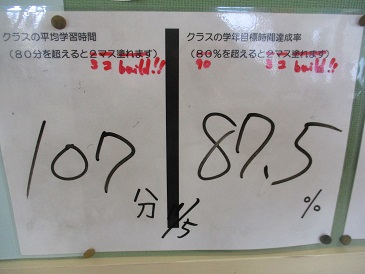 クラスの平均学習時間
(80分を超えると2マス塗れます)
33 build!!
107
分
クラスの学年目標時間達成率
(80%を超えると2マス塗れます)
90 33 build!!
87.5
%
11/5